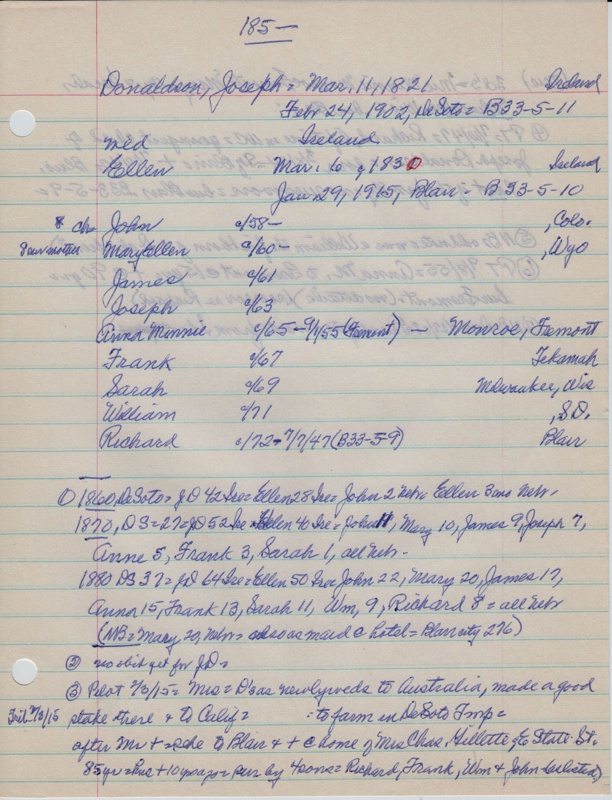 185—
Donaldson, Joseph = Mar, 11, 1821 Ireland
Febr 24, 1902, DeSoto = B33-5-11
wed Ireland
Ellen Mar. 6, 1830 Ireland
Jan 29, 1915, Blair = B33-5-10
8 ch= John c/58— , Colo.
Mary Ellen c/60— , Wyo
James c/61
Joseph c/63
Anna Minnie c/65—9/1/55 (Fremont) — Monroe, Fremont
Frank c/67 Tekamah
Sarah c/69 Milwaukee, Wis
William c/71 , S.D.
Richard c/72—7/7/47 (B33-5-9) Blair
① 1860, DeSoto = JD 42 Ire = Ellen 28 Ire = John 2 Nebr Ellen 3 mo Nebr.
1870, DS = 27 = JD 52 Ire = Ellen 40 Ire = John 11, Mary 10, James 9, Joseph 7,
Anne 5, Frank 3, Sarah 1, all Nebr.
1880 DS 37 = JD 64 Ire = Ellen 50 Ire John 22, Mary 20, James 17,
Anna 15, Frank 13, Sarah 11, Wm, 9, Richard 8 = all Nebr
(NB = Mary 20, Nebr = also as maid @ hotel = Blair city 276)
② no obit yet for JD =
③ Pilot 2/3/15 = Mrs = D's as newlyweds to Australia, made a good
Trib. 2/3/15 stake there & to Calif = to farm in DeSoto Twp =
after Mr + = she to Blair & + @ home of Mrs Chas. Gillette of E State St.
85 yr = +10 = sur by 4 sons = Richard, Frank, Wm & John